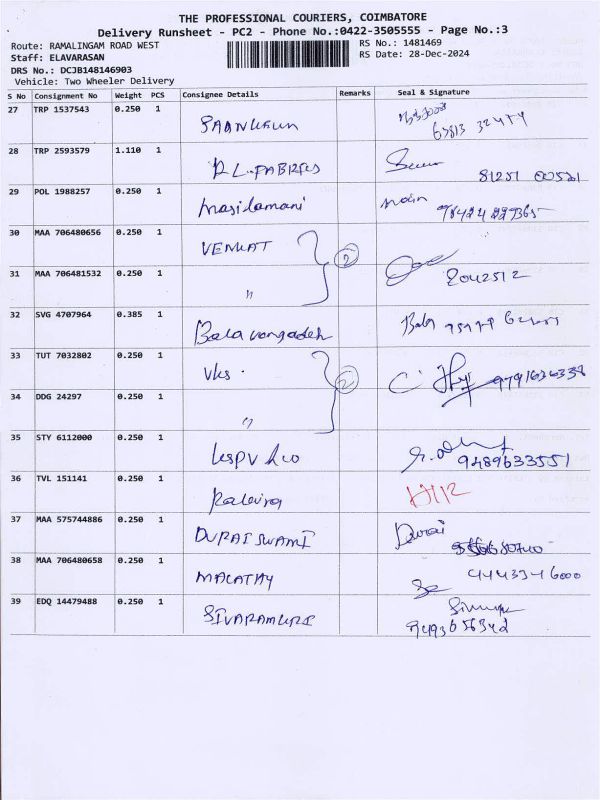 THE PROFESSIONAL COURIERS, COIMBATORE
Delivery Runsheet - PC2 - Phone No.:0422-3505555 - Page No.:3
Route: RAMALINGAM ROAD WEST
RS No.: 1481469
Staff: ELAVARASAN
RS Date: 28-Dec-2024
DRS No.: DCJB148146903
Vehicle: Two Wheeler Delivery
S No Consignment No Weight PCS Consignee Details Remarks Seal & Signature
27 TRP 1537543 0.250 1
28 TRP 2593579 1.110 1
29 POL 1988257 0.250 1 Masilamani
30 MAA 706480656 0.250 1 VENKAT 2
31 MAA 706481532 0.250 1 〃
32 SVG 4707964 0.385 1 Bala
33 TUT 7032802 0.250 1 Vks. 2
34 DDG 24297 0.250 1 〃
35 STY 6112000 0.250 1 9489633551
36 TVL 151141 0.250 1
37 MAA 575744886 0.250 1 DURAISWAMI Durai
38 MAA 706480658 0.250 1 MALATHY
39 EDQ 14479488 0.250 1